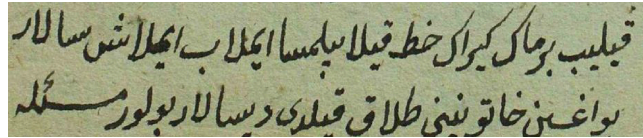 قیلیب برماک کیراک خط قیلا بیلمسا ایملاب ایملاش سالار
بو اغسن خاتوننی طلاق قیلدی دیسالار بولور مسئله